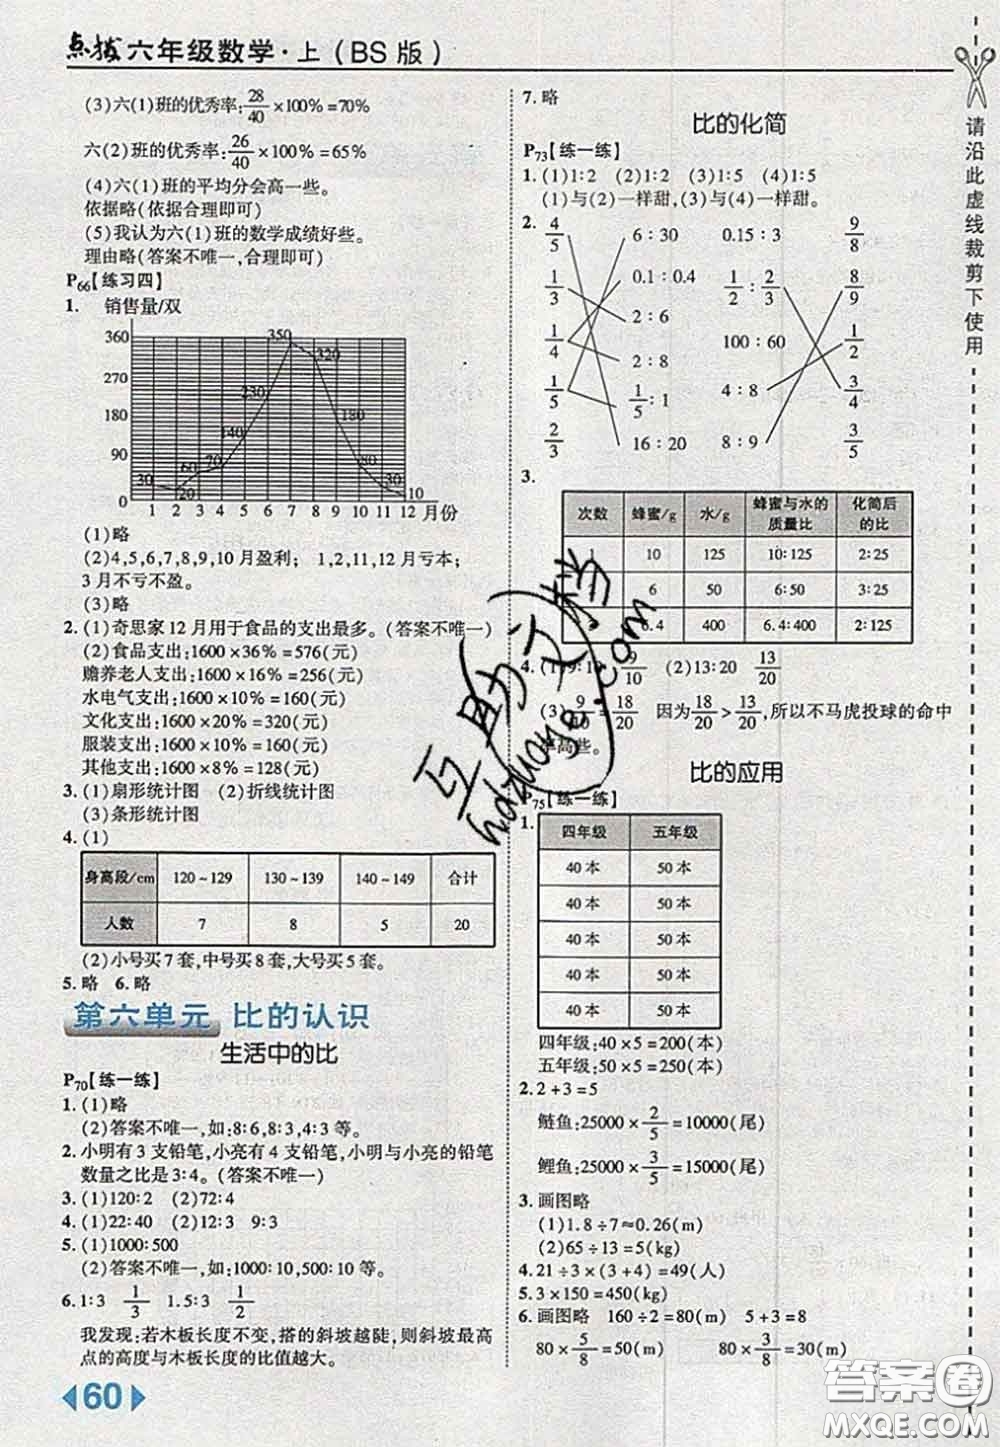 点拨 六年级数学·上(BS版)
(3)六(1)班的优秀率:28/40×100%=70%
六(2)班的优秀率:26/40×100%=65%
(4)六(1)班的平均分会高一些。
依据略(依据合理即可)
(5)我认为六(1)班的数学成绩好些。
理由略(答案不唯一,合理即可)
P66【练习四】
1. 销售量/双
360
270
180
90
0
30 20 60 70 140 230 350 320 180 80 30 10
1 2 3 4 5 6 7 8 9 10 11 12 月份
(1)略
(2)4,5,6,7,8,9,10月盈利; 1,2,11,12月亏本;
3月不亏不盈。
(3)略
2. (1)奇思家12月用于食品的支出最多。(答案不唯一)
(2)食品支出:1600×36%=576(元)
赡养老人支出:1600×16%=256(元)
水电气支出:1600×10%=160(元)
文化支出:1600×20%=320(元)
服装支出:1600×10%=160(元)
其他支出:1600×8%=128(元)
3. (1)扇形统计图 (2)折线统计图
(3)条形统计图
4. (1)
身高段/cm 120~129 130~139 140~149 合计
人数 7 8 5 20
(2)小号买7套,中号买8套,大号买5套。
5. 略 6. 略
第六单元 比的认识
生活中的比
P70【练一练】
1. (1)略
(2)答案不唯一,如:8∶6,8∶3,3∶8等。
2. 小明有3支铅笔,小亮有4支铅笔,小明与小亮的铅笔
数量之比是3∶4。(答案不唯一)
3. (1)120∶2 (2)72∶4
4. (1)22∶40 (2)12∶3 9∶3
5. (1)1000∶500
(2)答案不唯一,如:100∶10,500∶10等。
6. 1∶3 1/3 1.5∶3 1/2
我发现:若木板长度不变,搭的斜坡越陡,则斜坡最高
点的高度与木板长度的比值越大。
60
7. 略
比的化简
P73【练一练】
1. (1)1∶2 (2)1∶2 (3)1∶5 (4)1∶5
(1)与(2)一样甜,(3)与(4)一样甜。
2. 4/5 6∶30 0.15∶3 9/8
1/3 0.1∶0.4 1/2∶2/3 8/9
2∶6
1/4 2∶8 100∶60 1/2
1/5 1/5∶1 4∶8 3/4
2/3 16∶20 8∶9 3/5
3.
次数 蜂蜜/g 水/g 蜂蜜与水的质量比 化简后的比
1 10 125 10∶125 2∶25
6 50 6∶50 3∶25
6.4 400 6.4∶400 2∶125
4. (1)9∶10 9/10 (2)13∶20 13/20
(3)9/10=18/20 因为18/20>13/20,所以不马虎投球的命中
率高些。
比的应用
P75【练一练】
1.
四年级 五年级
40本 50本
40本 50本
40本 50本
40本 50本
40本 50本
四年级:40×5=200(本)
五年级:50×5=250(本)
2. 2+3=5
鲢鱼:25000×2/5=10000(尾)
鲤鱼:25000×3/5=15000(尾)
3. 画图略
(1)1.8÷7≈0.26(m)
(2)65÷13=5(kg)
4. 21÷3×(3+4)=49(人)
5. 3×150=450(kg)
6. 画图略 160÷2=80(m) 5+3=8
80×5/8=50(m) 80×3/8=30(m)
请沿此虚线裁剪下使用
互助文档
hdzuoye.com
答案圈
MXQE.COM